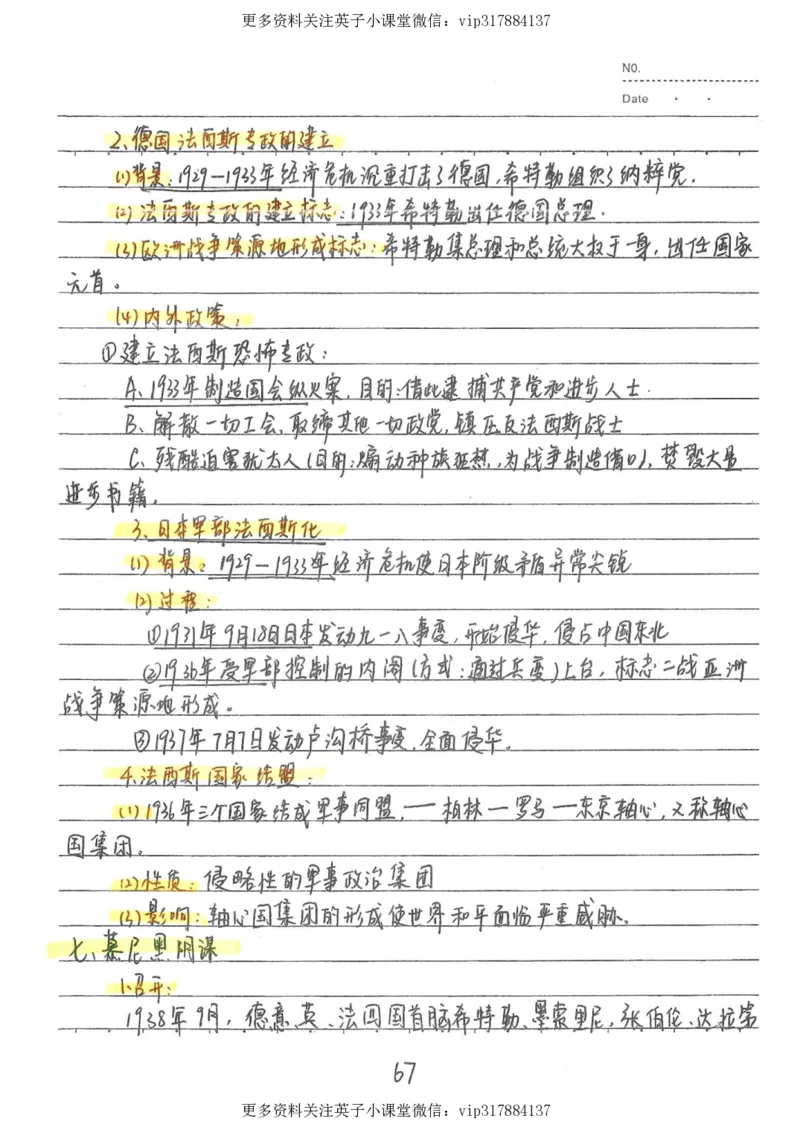 更多资料关注英子小课堂微信：vip317884137
NO.
Date
2、德国法西斯专政的建立
(1)背景：1929—1933年经济危机沉重打击了德国，希特勒组织了纳粹党．
(2)法西斯专政的建立标志：1933年希特勒出任德国总理．
(3)欧洲战争策源地形成标志：希特勒集总理和总统大权于一身，出任国家
元首。
(4)内外政策：
①建立法西斯恐怖专政：
A、1933年制造国会纵火案，目的：借此逮捕共产党和进步人士．
B、解散一切工会、取缔其他一切政党，镇压反法西斯战士
C、残酷迫害犹太人（目的：煽动种族狂热，为战争制造借口），焚毁大量
进步书籍。
3、日本军部法西斯化
(1)背景：1929—1933年经济危机使日本阶级矛盾异常尖锐
(2)过程：
①1931年9月18日日本发动九一八事变，开始侵华，侵占中国东北
②1936年受军部控制的内阁（方式：通过兵变）上台，标志二战亚洲
战争策源地形成。
③1937年7月7日发动卢沟桥事变，全面侵华。
4、法西斯国家结盟：
(1)1936年三个国家结成军事同盟，—柏林—罗马—东京轴心，又称轴心
国集团。
(2)性质：侵略性的军事政治集团
(3)影响：轴心国集团的形成使世界和平面临严重威胁。
七、慕尼黑阴谋
1、召开：
1938年9月，德、意、英、法四国首脑希特勒、墨索里尼，张伯伦、达拉第
67
更多资料关注英子小课堂微信：vip317884137